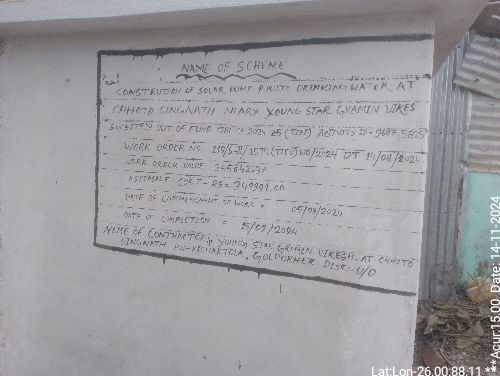 NAME OF SCHEME
CONSTRUTION OF SOLAR PUMP DRINKING WATER AT
CHHOTO SINGNATH NEARY YOUNG STAR GRAMIN VIKES
OUT OF FUND 2024-25 (TIED) ACTIVITY ID-
WORK ORDER NO 2024 DT 14/08/2024
WORK ORDER VALUE
COST - RS = 349991.00
DATE OF COMMENCMENT OF WORK - 05/09/2024
DATE OF COMPLETION = 15/09/2024
NAME OF CONTRACTOR YOUNG STAR GRAMEN VIKESH. AT CHHOTO
SINGNATH GOLPOKHER DIST- U/D
Lat:Lon-26.00:88.11
**Acur:15.00 Date: 14-11-2024